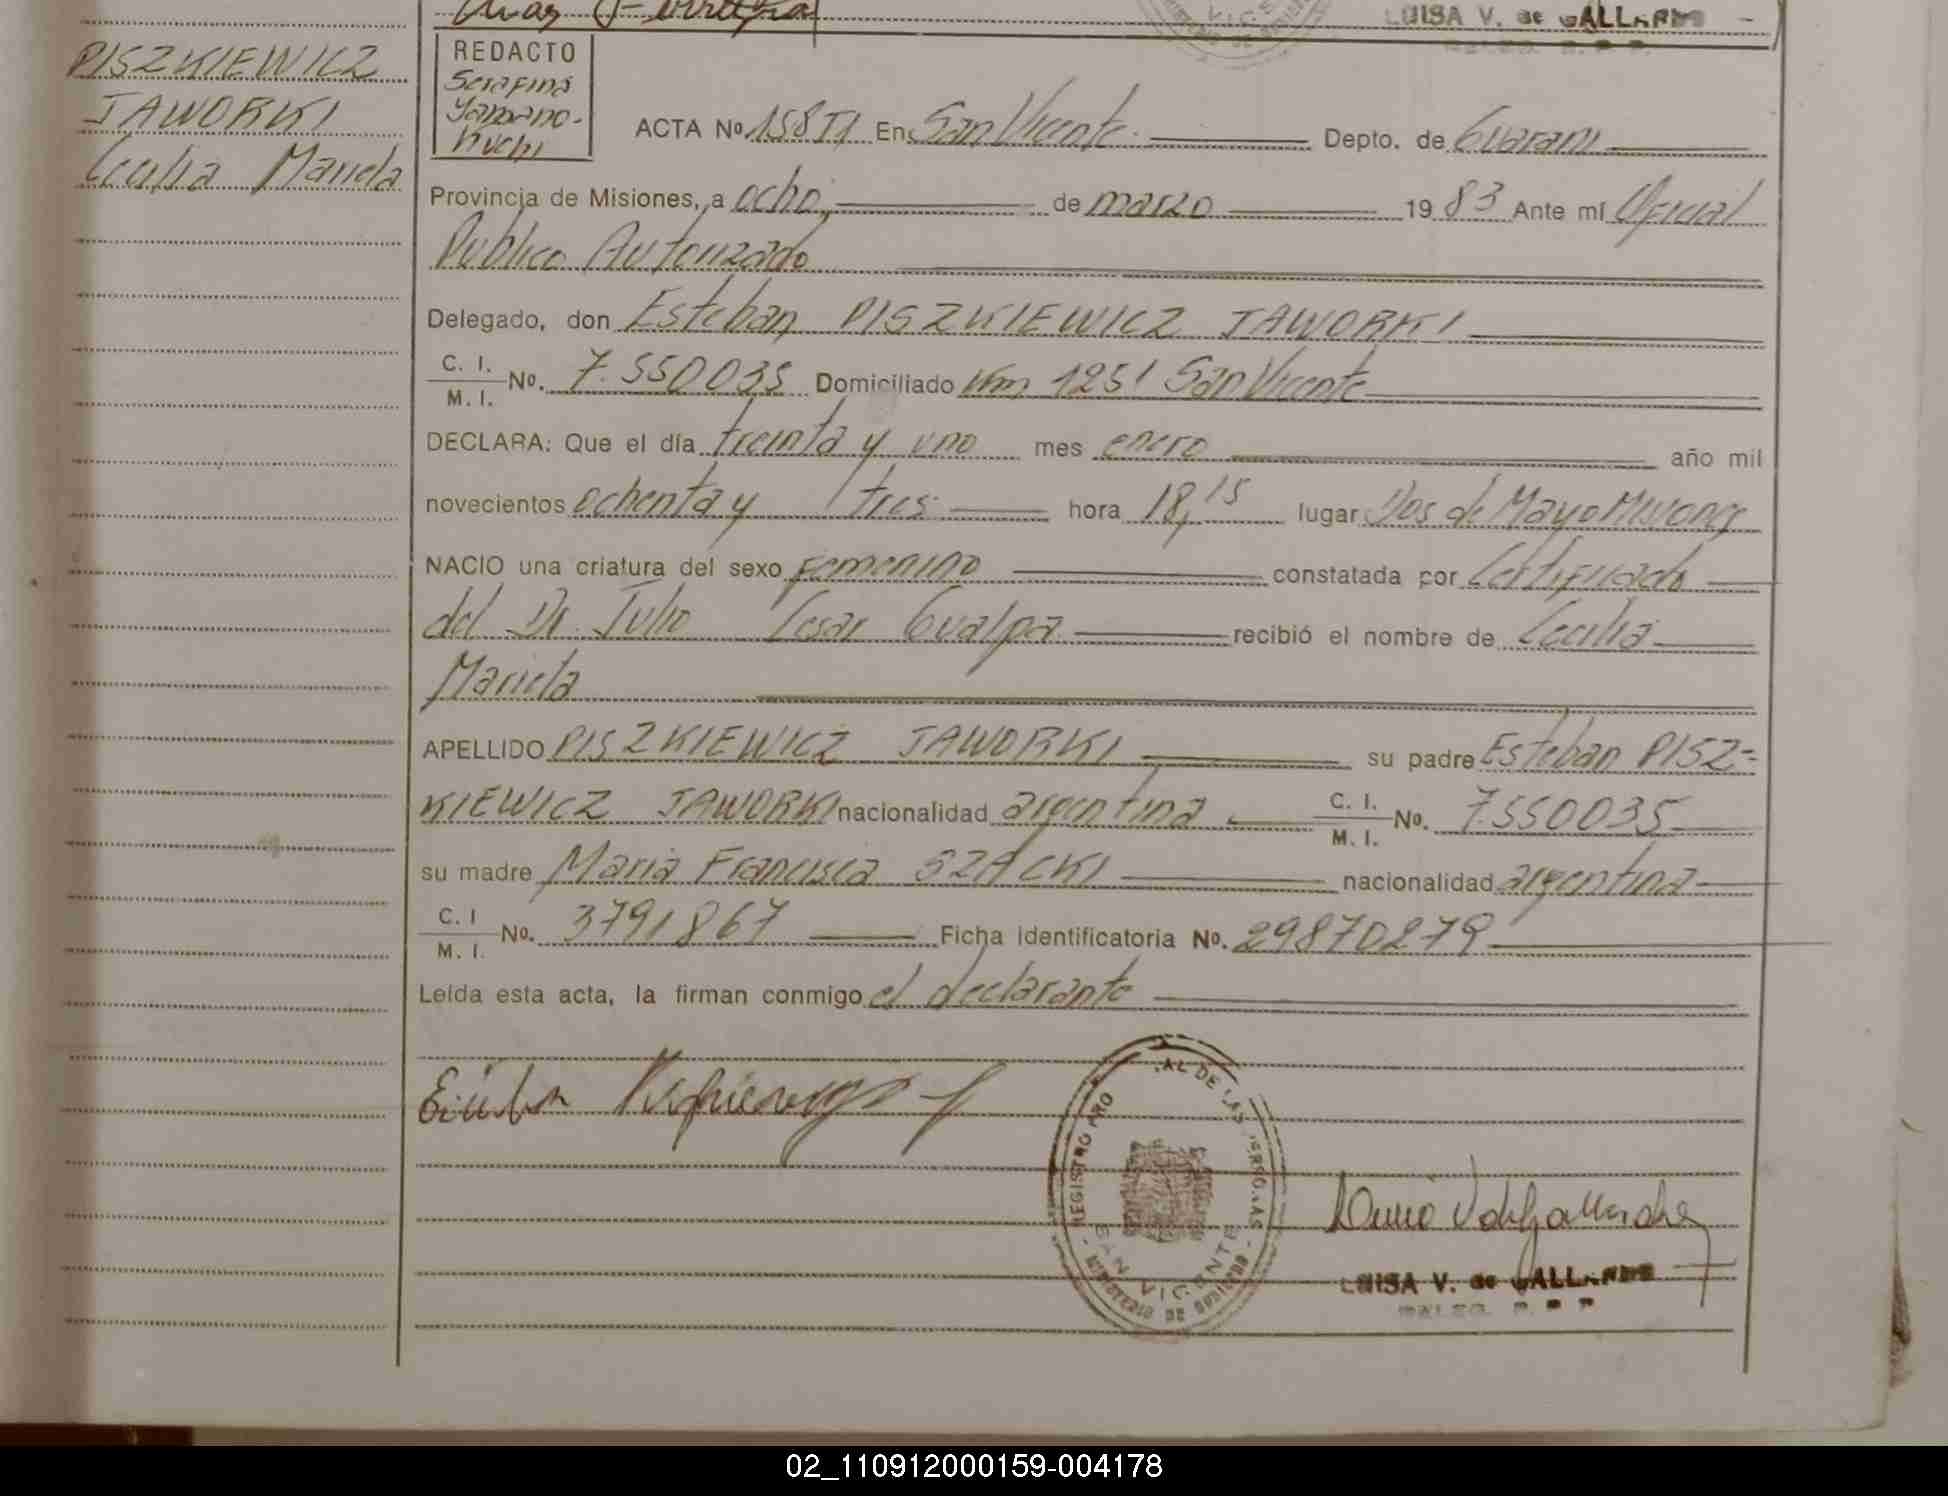 LUISA V. de GALLARDO
PISZKIEWICZ
JAWORKI
Cecilia Mariela
REDACTO
Serafina
Yamano-
kuchi
ACTA No 158 T1 En San Vicente Depto. de Guarani
Provincia de Misiones, a ocho de marzo 19 83 Ante mí Oficial
Publico Autorizado
Delegado, don Esteban PISZKIEWICZ JAWORKI
C. I.
M. I. No. 7.550035 Domiciliado Km 1251 San Vicente
DECLARA: Que el día treinta y uno mes enero año mil
novecientos ochenta y tres hora 18,15 lugar Dos de Mayo Misiones
NACIO una criatura del sexo femenino constatada por Certificado
del Dr. Julio Cesar Gualpa recibió el nombre de Cecilia
Mariela
APELLIDO PISZKIEWICZ JAWORKI su padre Esteban PISZ=
KIEWICZ JAWORKI nacionalidad argentina C. I.
M. I. No. 7.550035
su madre Maria Francisca SZACKI nacionalidad argentina
C. I
M. I. No. 3791867 Ficha identificatoria No. 29870279
Leída esta acta, la firman conmigo el declarante
REGISTRO AL DE LAS
SAN VICENTE
MINISTERIO DE GOBIERNO
LUISA V. de GALLARDO
02_110912000159-004178